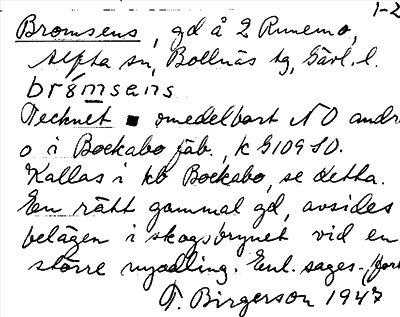 1-2
Bromsens, gd å 2 Runemo,
Alfta sn, Bollnäs tg, Gävl. l.
brômsens
Tecknet ■ omedelbart NO andr
o i Bockabo fäb., k G109 SO.
Kallas i kb Bockabo, se detta.
En rätt gammal gd, avsides
belägen i skogsbrynet vid en
större nyodling. Enl. sages-
T. Birgerson 1947